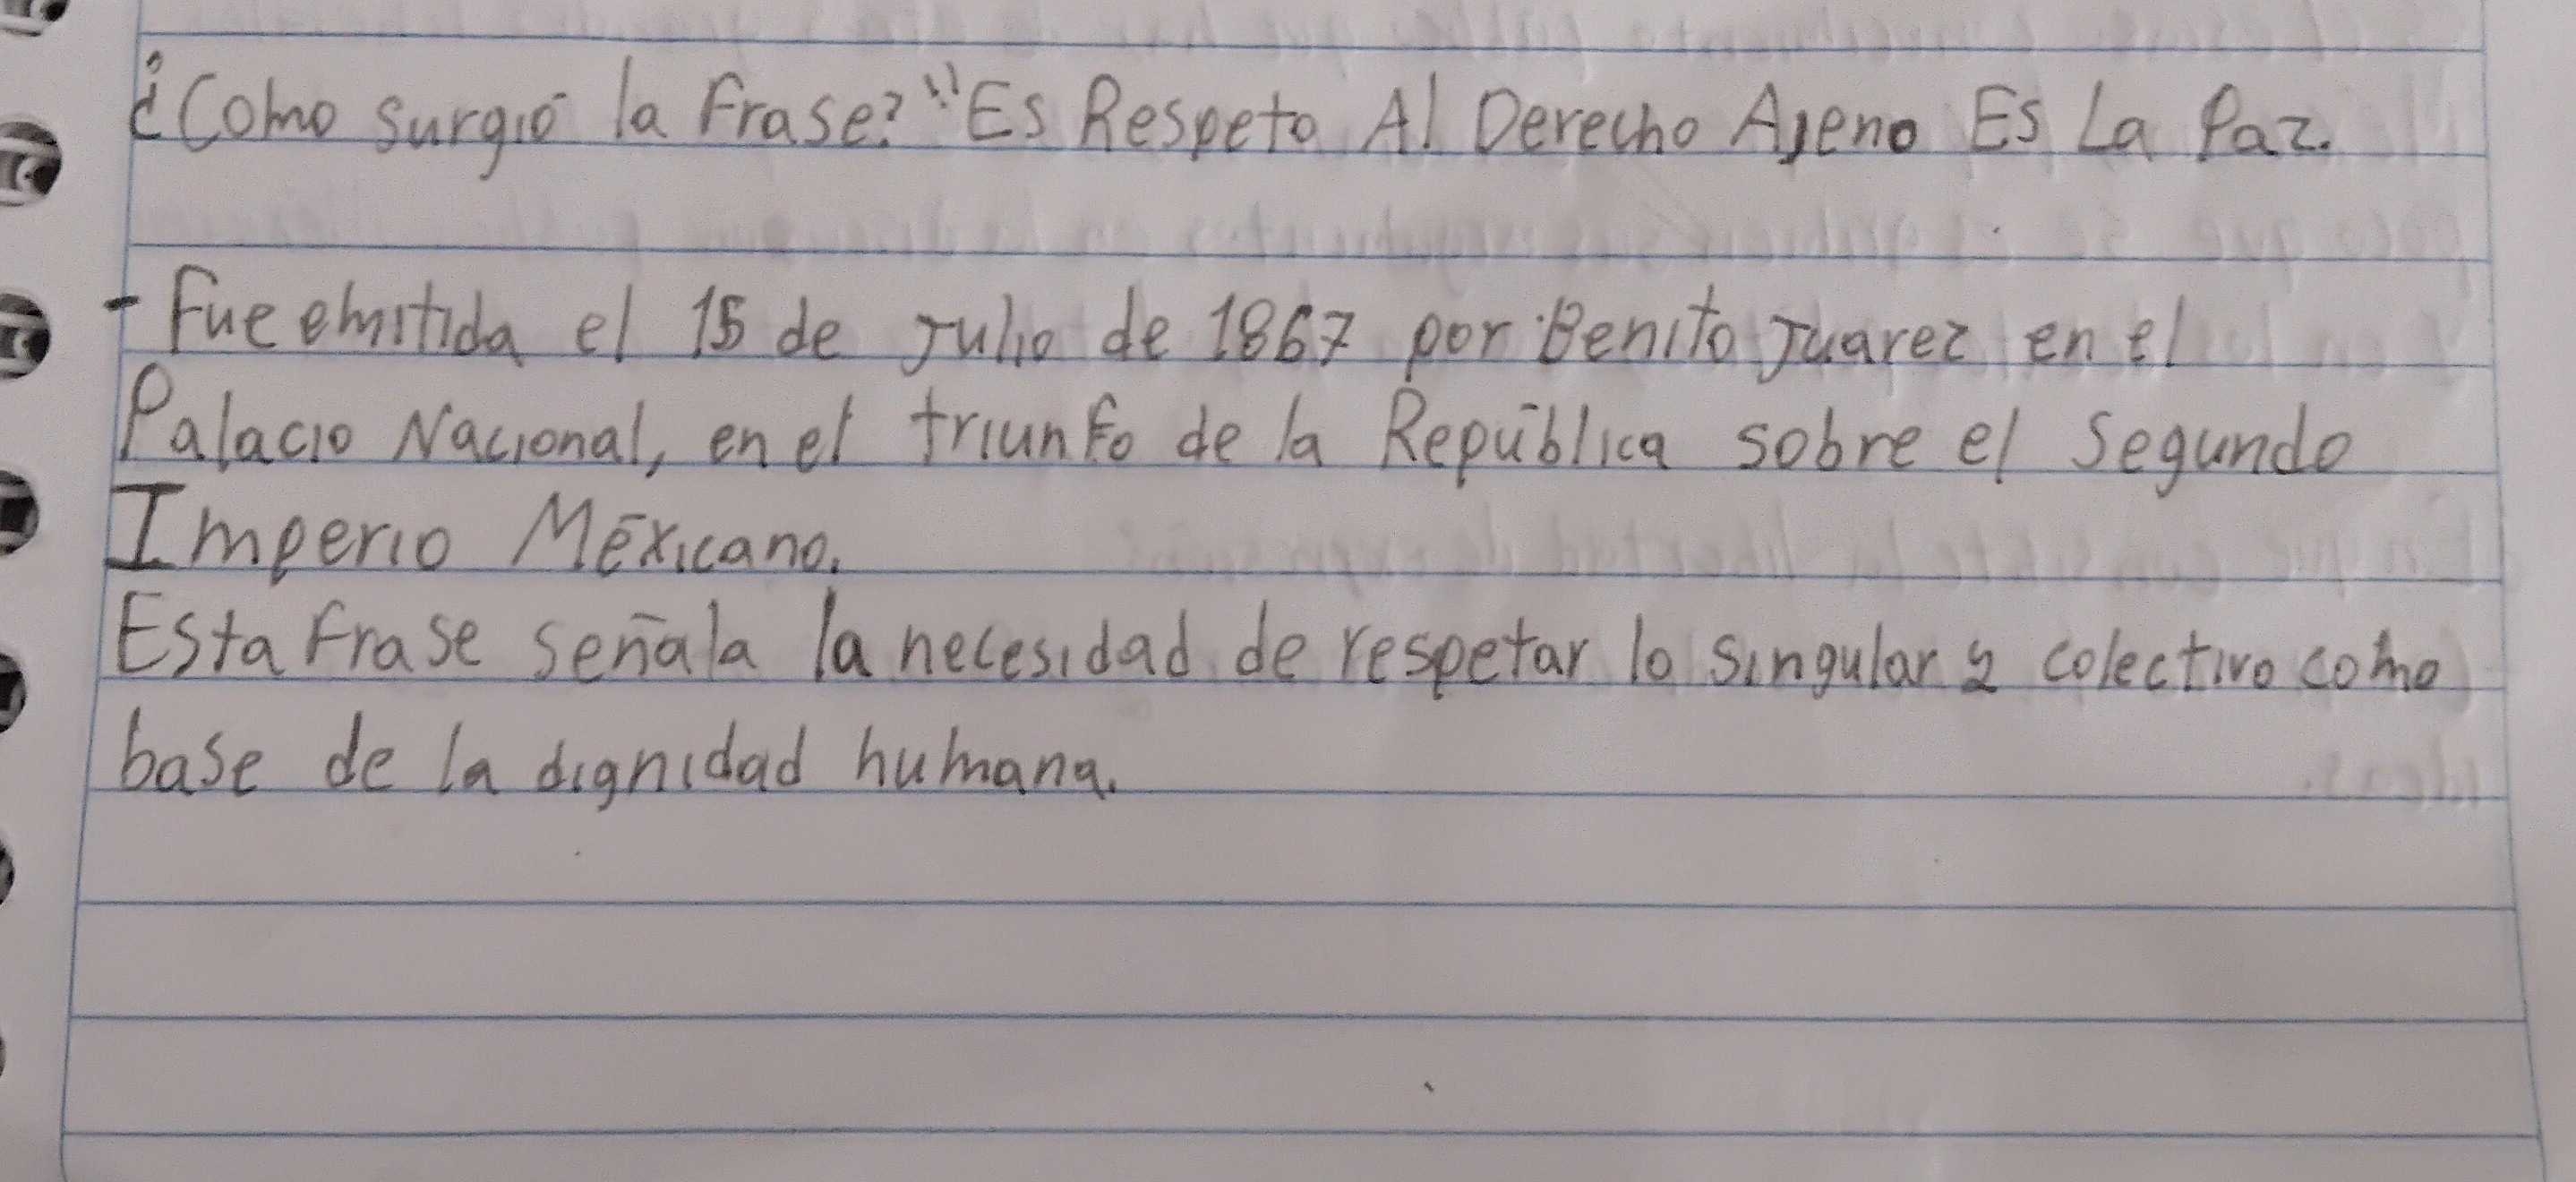 ¿Como surgió la Frase? "Es Respeto Al Derecho Ajeno Es La Paz.
- Fue emitida el 15 de Julio de 1867 por Benito Juarez en el
Palacio Nacional, en el triunfo de la República sobre el Segundo
Imperio Méxicano.
Esta Frase señala la necesidad de respetar lo singular y colectivo como
base de la dignidad humana.